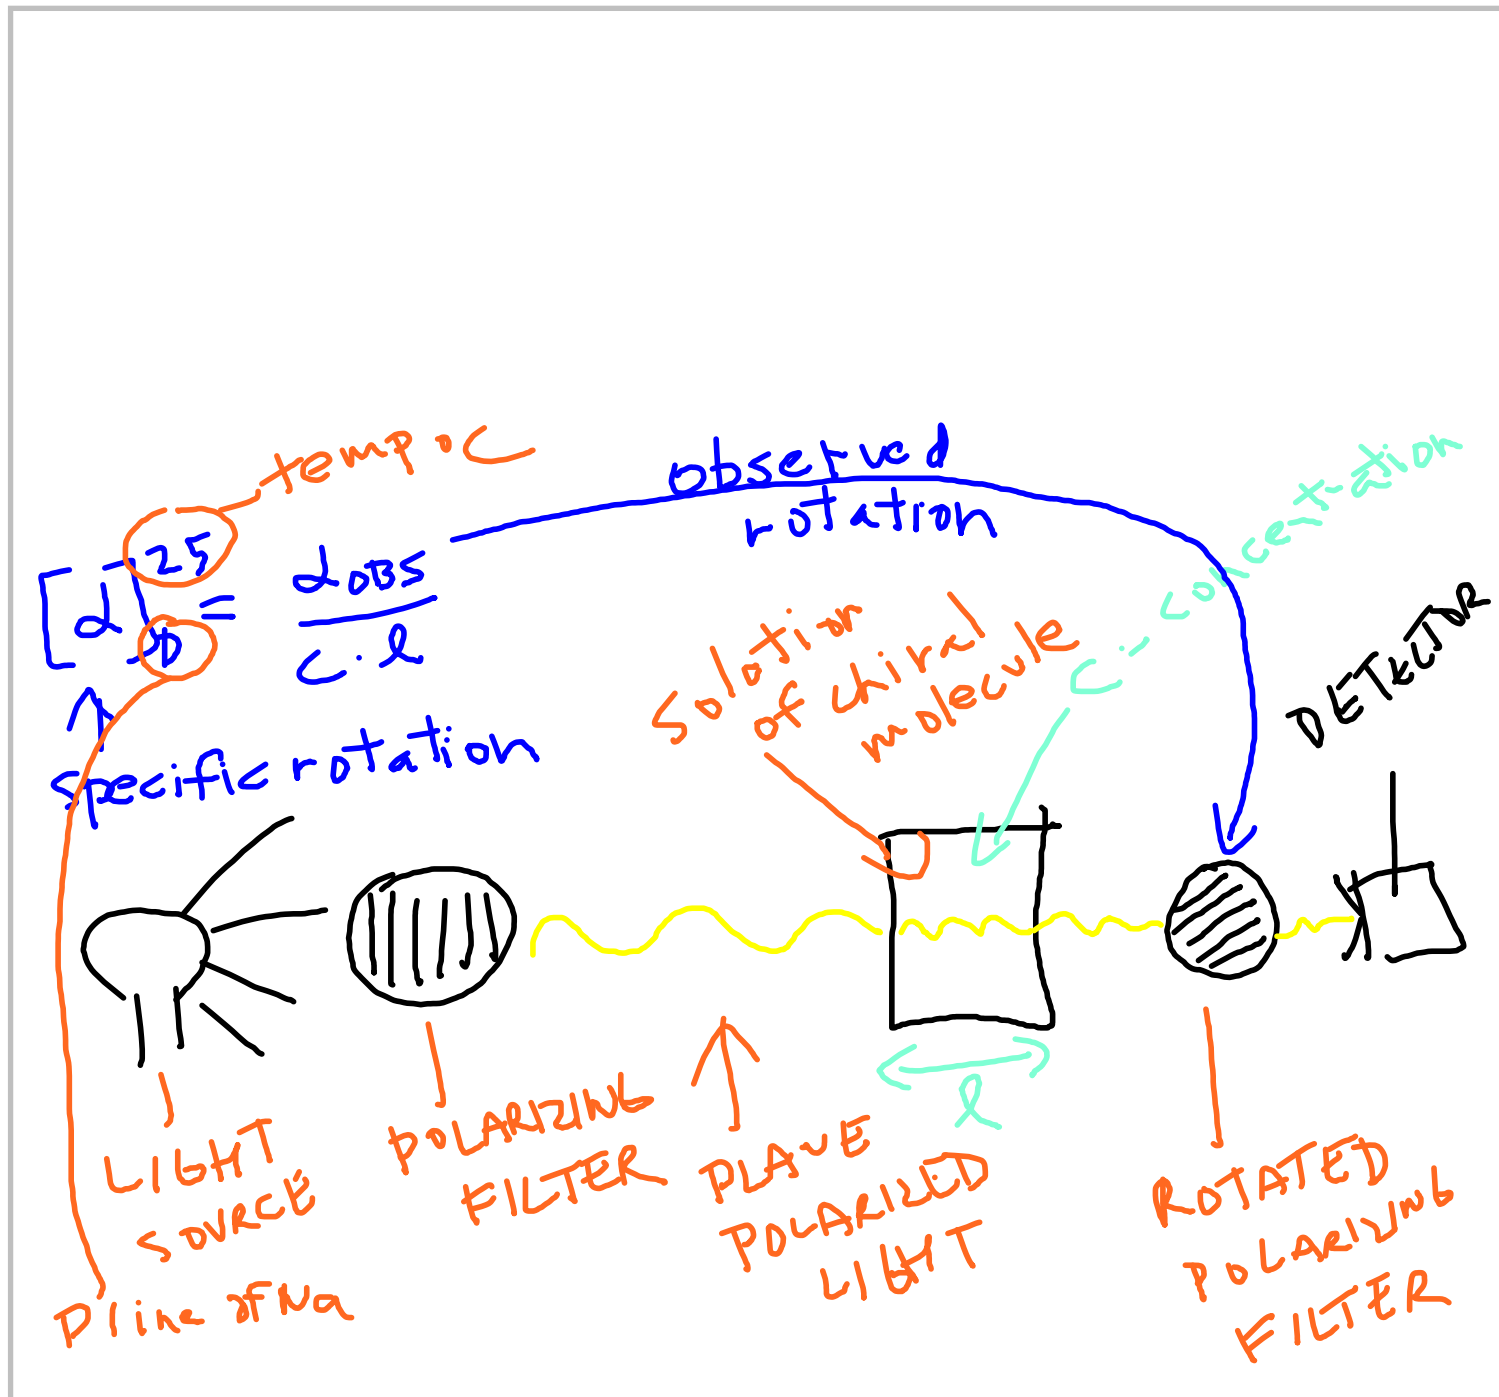 temp °C
observed
rotation
[α]25D = αOBS / c·l
specific rotation
solution
of chiral
molecule
c - concentration
DETECTOR
l
LIGHT
SOURCE
POLARIZING
FILTER
PLANE
POLARIZED
LIGHT
ROTATED
POLARIZING
FILTER
D line of Na